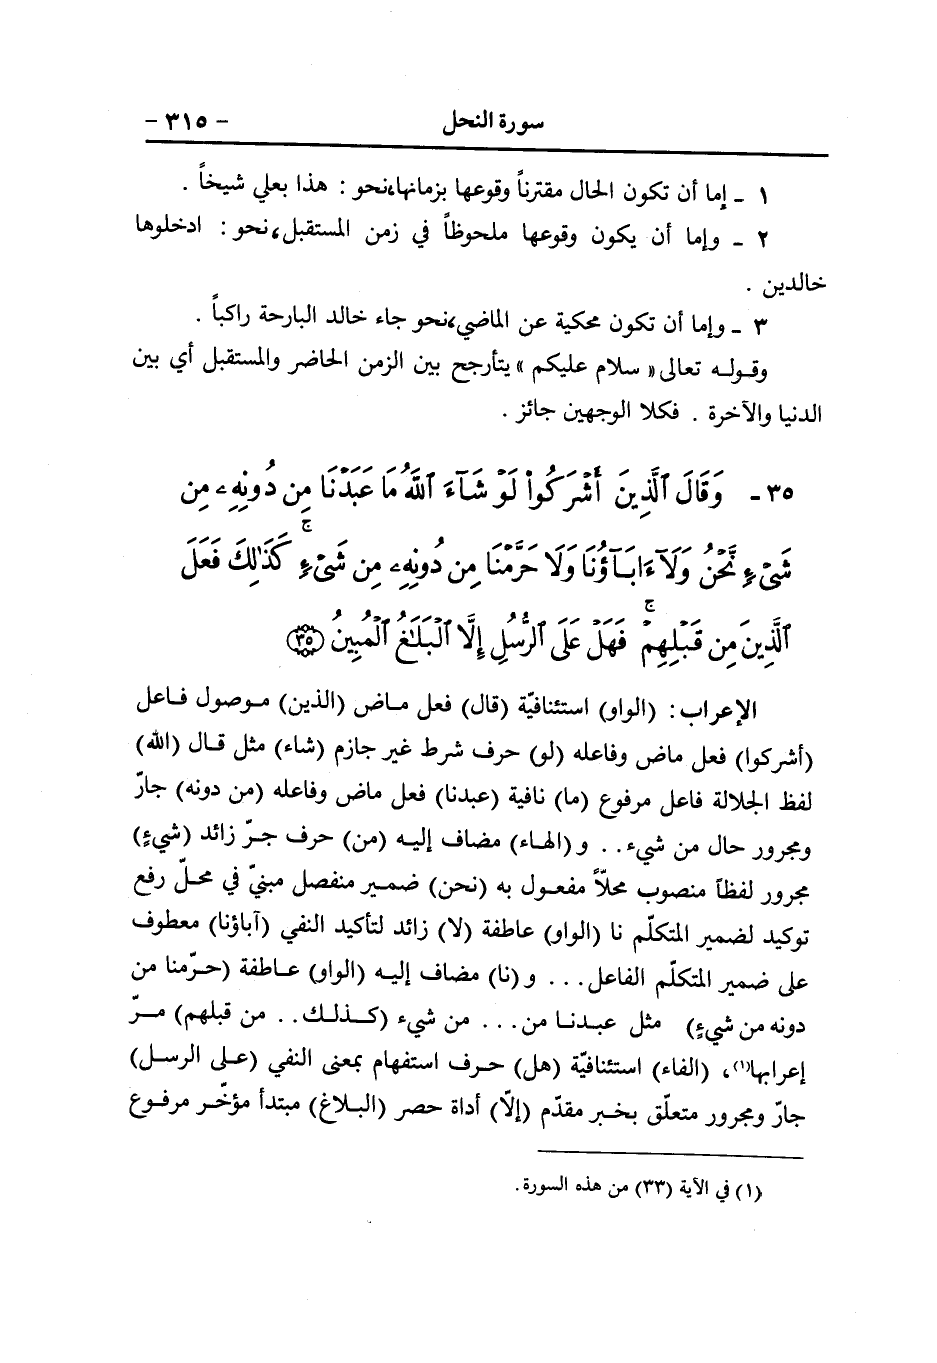 سورة النحل - ٣١٥ -
١ - إما أن تكون الحال مقترناً وقوعها بزمانها، نحو : هذا بعلي شيخاً .
٢ - وإما أن يكون وقوعها ملحوظاً في زمن المستقبل، نحو : ادخلوها
خالدين .
٣ - وإما أن تكون محكية عن الماضي، نحو جاء خالد البارحة راكباً .
وقوله تعالى « سلام عليكم » يتأرجح بين الزمن الحاضر والمستقبل أي بين
الدنيا والآخرة . فكلا الوجهين جائز .
٣٥ - وَقَالَ ٱلَّذِينَ أَشْرَكُوا۟ لَوْ شَآءَ ٱللَّهُ مَا عَبَدْنَا مِن دُونِهِۦ مِن
شَىْءٍ نَّحْنُ وَلَآ ءَابَآؤُنَا وَلَا حَرَّمْنَا مِن دُونِهِۦ مِن شَىْءٍ ۚ كَذَٰلِكَ فَعَلَ
ٱلَّذِينَ مِن قَبْلِهِمْ ۚ فَهَلْ عَلَى ٱلرُّسُلِ إِلَّا ٱلْبَلَٰغُ ٱلْمُبِينُ ٣٥
الإعراب : (الواو) استئنافيّة (قال) فعل ماض (الذين) موصول فاعل
(أشركوا) فعل ماض وفاعله (لو) حرف شرط غير جازم (شاء) مثل قال (الله)
لفظ الجلالة فاعل مرفوع (ما) نافية (عبدنا) فعل ماض وفاعله (من دونه) جارّ
ومجرور حال من شيء .. و(الهاء) مضاف إليه (من) حرف جرّ زائد (شيءٍ)
مجرور لفظاً منصوب محلّاً مفعول به (نحن) ضمير منفصل مبنيّ في محلّ رفع
توكيد لضمير المتكلّم نا (الواو) عاطفة (لا) زائد لتأكيد النفي (آباؤنا) معطوف
على ضمير المتكلّم الفاعل ... و(نا) مضاف إليه (الواو) عاطفة (حرّمنا من
دونه من شيءٍ) مثل عبدنا من ... من شيء (كذلك .. من قبلهم) مرّ
إعرابها(١)، (الفاء) استئنافيّة (هل) حرف استفهام بمعنى النفي (على الرسل)
جارّ ومجرور متعلّق بخبر مقدّم (إلّا) أداة حصر (البلاغ) مبتدأ مؤخّر مرفوع
(١) في الآية (٣٣) من هذه السورة .